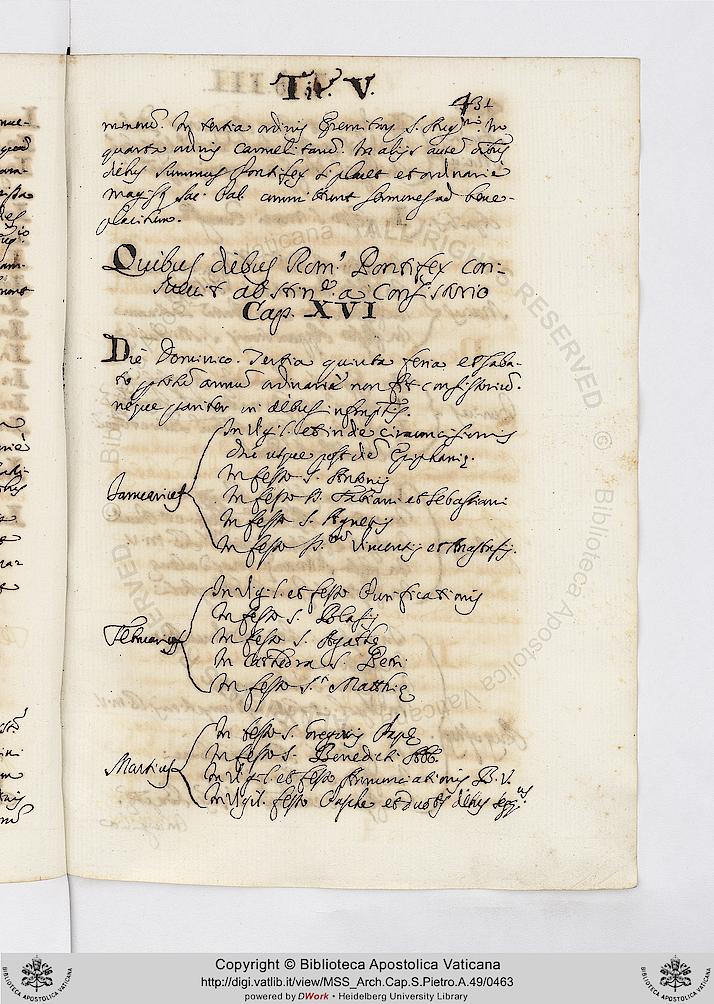 Tit. V.
431
minorũ. In tertia ordinis Eremitarũ S. Aug.ni In
quarta ordinis Carmelitarũ. In alijs autẽ oĩbus
diebus summus Pontifex si placet et ordinaria
Mag. Sac. Pal. committunt sermones ad bene-
placitum.
Quibus diebus Rom.s Pontifex con-
suevit abstinẽ a Consistorio
Cap. XVI
Die Dominico. Tertia quinta feria et Saba-
to totũ annũ ordinariè non fit consistoriũ.
neque pariter in diebus infrascriptis.
Ianuarius
In Vigil. et in die circumcisionis
Dñi usque post diẽ Epiphaniæ.
In festo S. Antonij
In festo S. Fabiani et Sebastiani
In festo S. Agnetis
In festo S. Vincentij et Anastasij.
Februarius
In Vigil. et festo Purificationis
In festo S. Blasij
In festo S. Agathæ
In Cathedra S. Petri
In festo S. Matthiæ
Martius
In festo S. Gregorij Papæ
In festo S. Benedicti Abb.
In Vigil. et festo Annunciationis B. V.
In Vigil. festo Paschæ et duobus diebus seqq.
Copyright © Biblioteca Apostolica Vaticana
http://digi.vatlib.it/view/MSS_Arch.Cap.S.Pietro.A.49/0463
powered by DWork • Heidelberg University Library
BIBLIOTECA APOSTOLICA VATICANA
BIBLIOTECA APOSTOLICA VATICANA